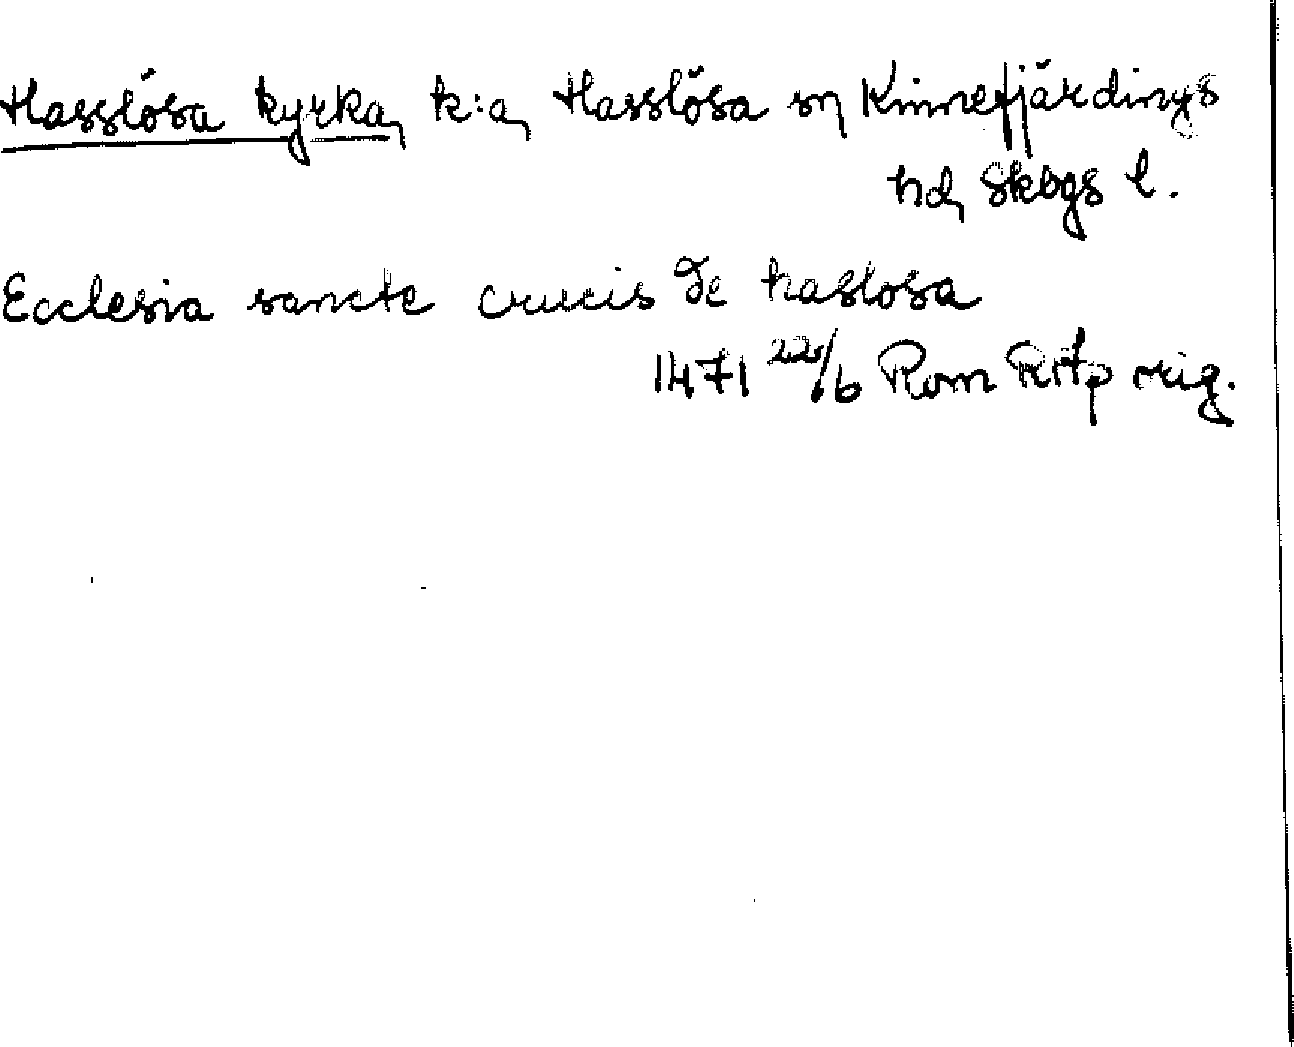 Hasslösa kyrka, k:a, Hasslösa sn, Kinnefjärdings
hd, Skbgs l.
Ecclesia sancte crucis de haslosa
1471 22/6 Rom RAp orig.